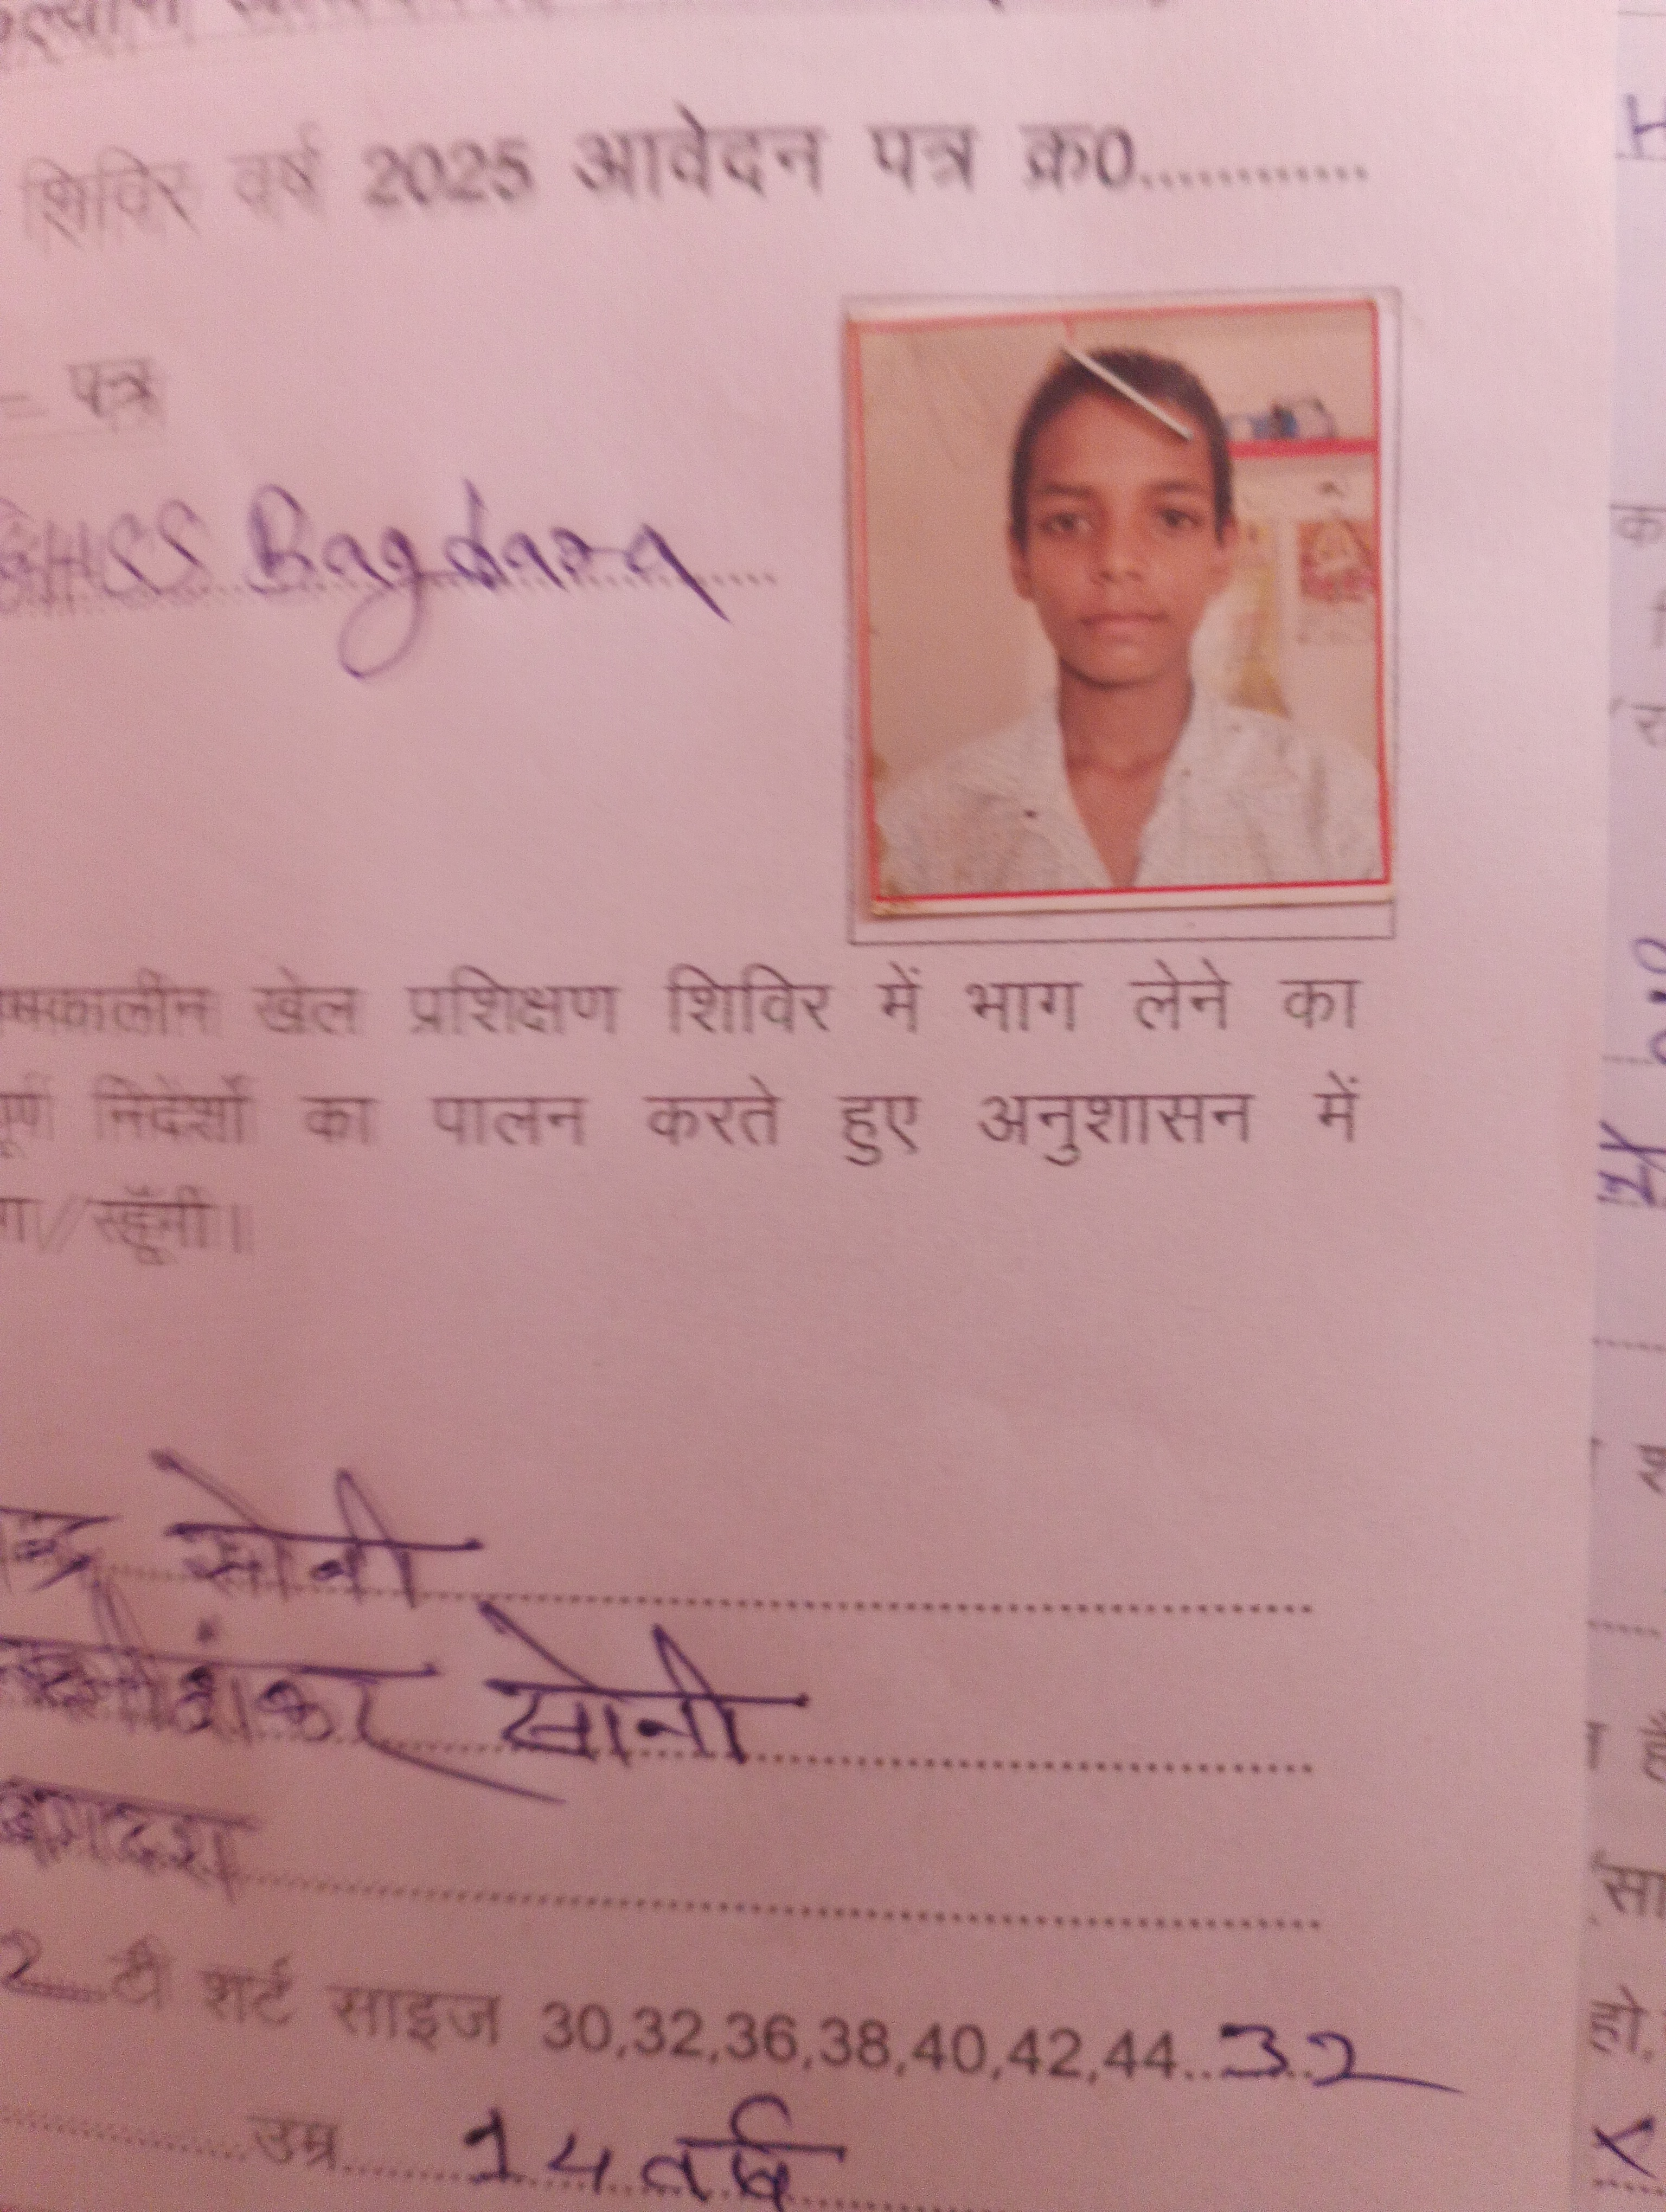 शिविर वर्ष 2025 आवेदन पत्र क्र0............
पत्र
GHSS Bagdara
खेल प्रशिक्षण शिविर में भाग लेने का
निर्देशों का पालन करते हुए अनुशासन में
रहूँगी।
सोनी
शंकर सोनी
बगदरा
2 टी शर्ट साइज 30,32,36,38,40,42,44..32
उम्र 14 वर्ष